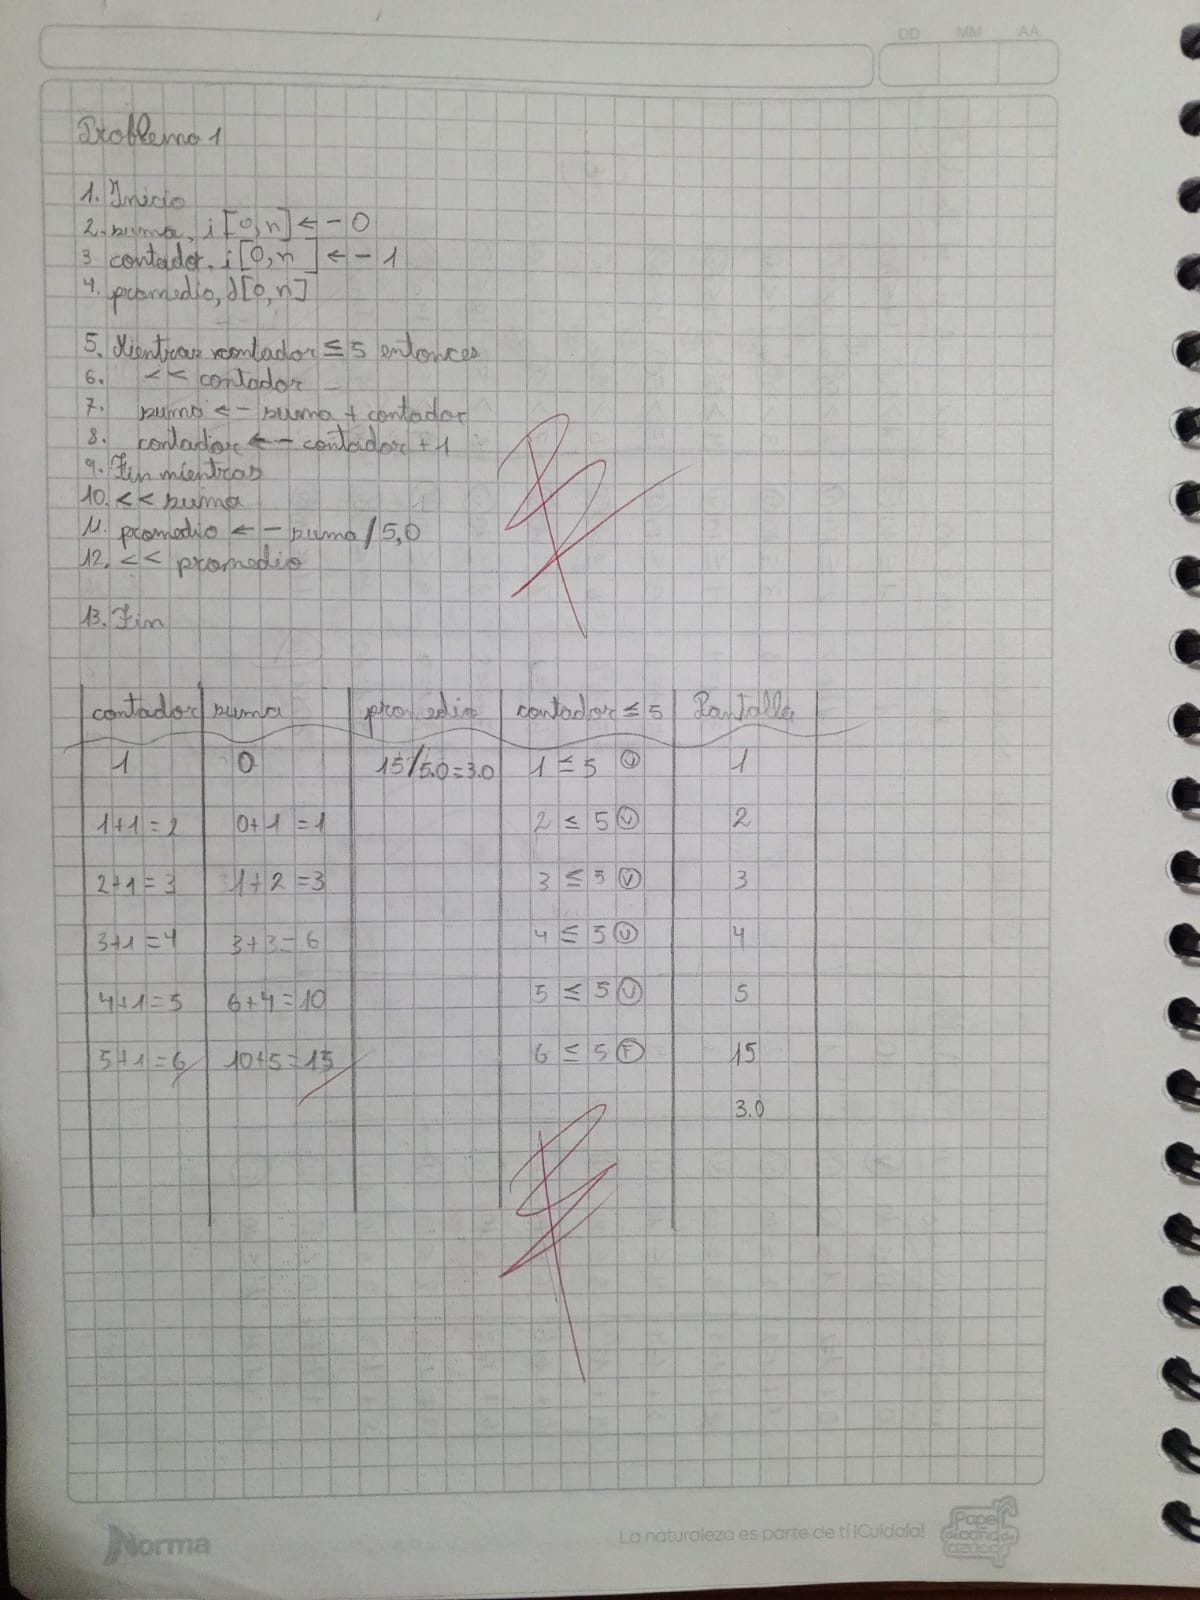 DD MM AA
Problema 1
1. Inicio
2. suma, i [0,n] <- 0
3 contador, i [0,n ] <- 1
4. promedio, d[0,n]
5. Mientras contador ≤ 5 entonces
6. << contador
7. suma <- suma + contador
8. contador <- contador + 1
9. Fin mientras
10. << suma
11. promedio <- suma / 5,0
12. << promedio
13. Fin
contador suma promedio contador ≤ 5 Pantalla
1 0 15/5.0=3.0 1 ≤ 5 V 1
1+1=2 0+1=1 2 ≤ 5 V 2
2+1=3 1+2=3 3 ≤ 5 V 3
3+1=4 3+3=6 4 ≤ 5 V 4
4+1=5 6+4=10 5 ≤ 5 V 5
5+1=6 10+5=15 6 ≤ 5 F 15
3.0
Norma
La naturaleza es parte de ti ¡Cuidala!
Papel de caña de azúcar